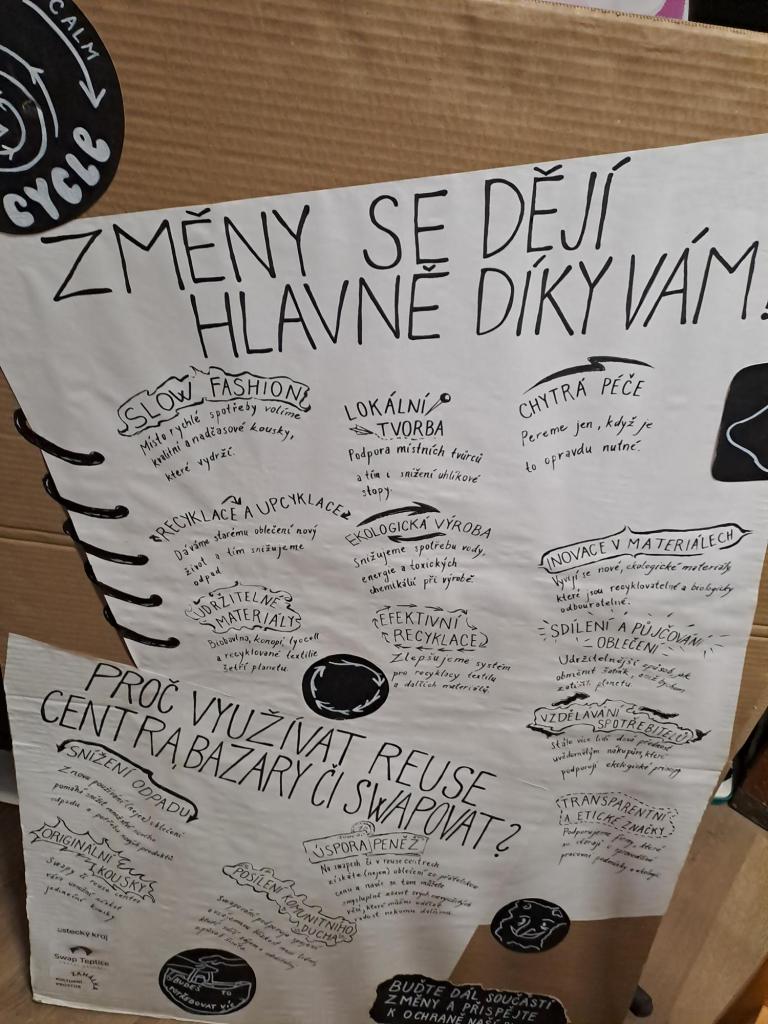 CALM
CYCLE
ZMĚNY SE DĚJÍ
HLAVNĚ DÍKY VÁM!
SLOW FASHION
Místo rychlé spotřeby volíme
kvalitní a nadčasové kousky,
které vydrží.
LOKÁLNÍ
TVORBA
Podpora místních tvůrců
a tím i snížení uhlíkové
stopy.
CHYTRÁ PÉČE
Pereme jen, když je
to opravdu nutné.
RECYKLACE A UPCYKLACE
Dáváme starému oblečení nový
život a tím snižujeme
odpad.
EKOLOGICKÁ VÝROBA
Snižujeme spotřebu vody,
energie a toxických
chemikálií při výrobě.
INOVACE V MATERIÁLECH
Vyvíjí se nové, ekologické materiály
které jsou recyklovatelné a biologicky
odbouratelné.
UDRŽITELNÉ
MATERIÁLY
Biobavlna, konopí, lyocell
a recyklované textilie
šetří planetu.
EFEKTIVNÍ
RECYKLACE
Zlepšujeme systém
pro recyklacy textilu
a dalších materiálů.
SDÍLENÍ A PŮJČOVÁNÍ
OBLEČENÍ
Udržitelnější způsob, jak
obměnit šatník, aniž bychom
zatížili planetu.
VZDĚLÁVÁNÍ
SPOTŘEBITELŮ
Stále více lidí dává přednost
uvědomělým nákupům, které
podporují ekologické
TRANSPARENTNÍ
A ETICKÉ ZNAČKY
Podporujeme firmy, které
se
pracovní podmínky a ekologii.
PROČ VYUŽÍVAT REUSE
CENTRA, BAZARY ČI SWAPOVAT?
SNÍŽENÍ ODPADU
Znovu používání (nejen) oblečení
pomáhá snížit množství
odpadu a potřebu nových produktů
ORIGINÁLNÍ
KOUSKY
Swapy či reuse centra
vám umožní získat
jedinečné kousky
ÚSPORA PENĚZ
Na swapech či v reuse centrech
získáte (nejen) oblečení za přátelskou
cenu a navíc se tam můžete
smysluplně zbavit svých nevyužitých
věcí, které můžou udělat
radost někomu dalšímu.
POSÍLENÍ KOMUNITNÍHO
DUCHA
Swapování podporuje spojení
ústecký kraj
Swap Teplice
ZAHÁLKA
KULTURNÍ
PROSTOR
BUDEŠ TO
POTŘEBOVAT VÍC
BUĎTE DÁL SOUČÁSTÍ
ZMĚNY A PŘISPĚJTE
K OCHRANĚ NAŠÍ